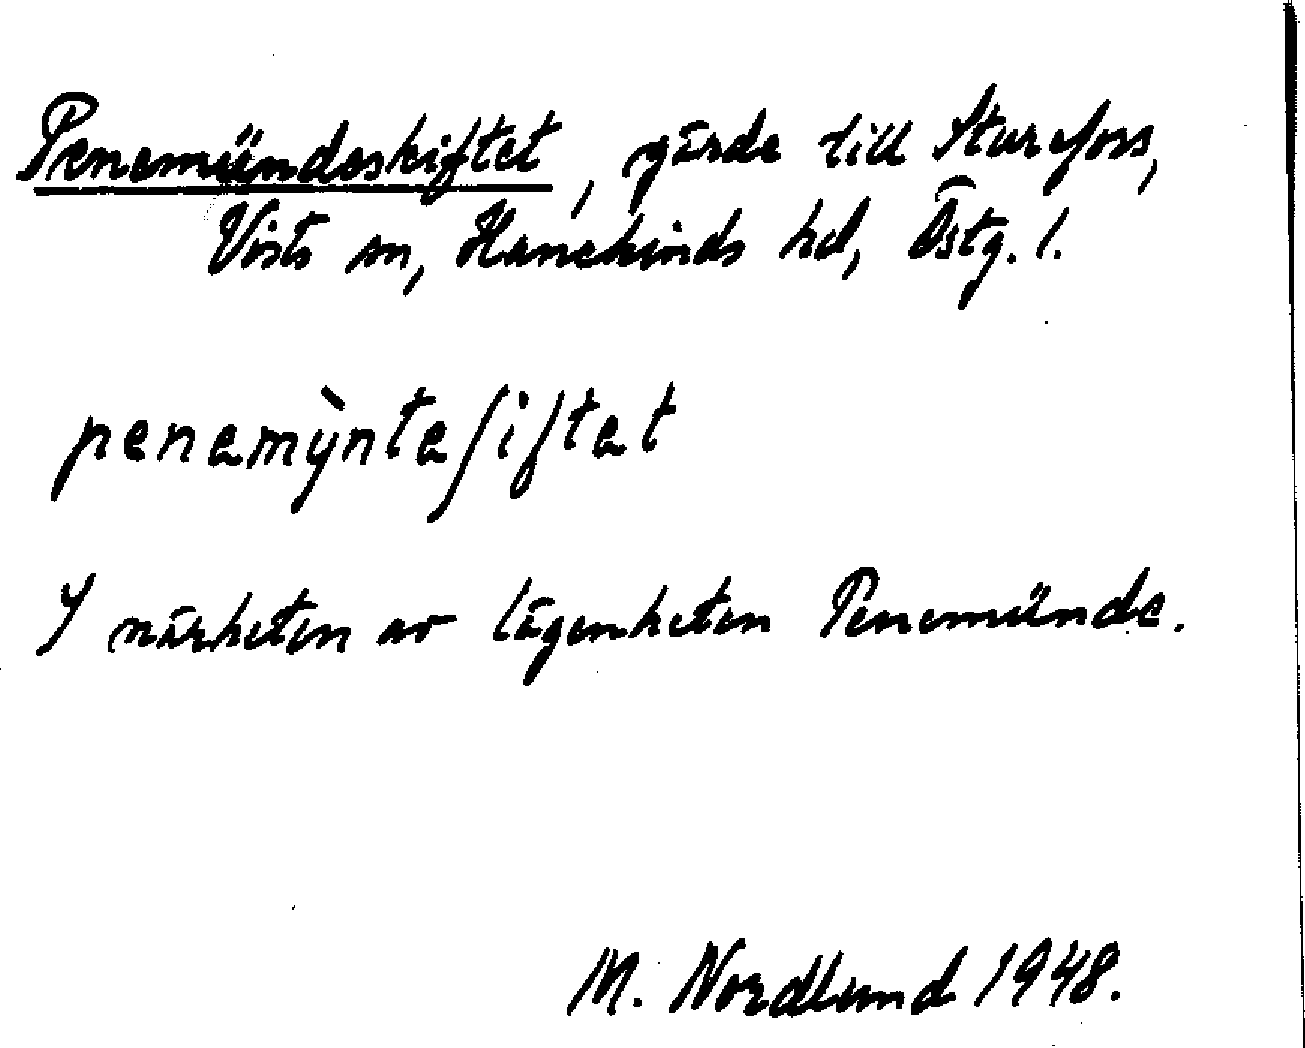 Penemündeskiftet, gärde till Sturefors,
Vists sn, Hanekinds hd, Östg. l.
penemỳnteʃiftet
I närheten av lägenheten Penemünde.
M. Nordlund 1948.